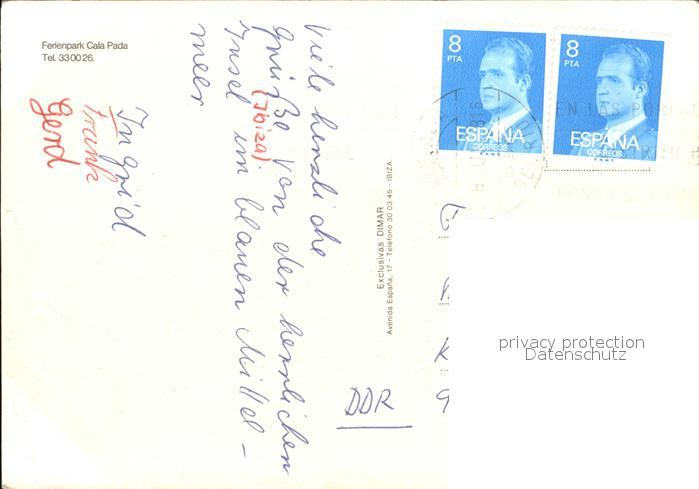 Ferienpark Cala Pada
Tel. 330026.
Viele herzliche
Grüße von der herrlichen
(Ibiza)
Insel im blauen Mittel-
meer
Ingrid
Frank
Gerd
Exclusivas DIMAR
Avenida España, 17 - Teléfono 30 03 45 - IBIZA
DDR
8
PTA
ESPAÑA
CORREOS
F.N.M.T.
8
PTA
ESPAÑA
CORREOS
F.N.M.T.
privacy protection
Datenschutz